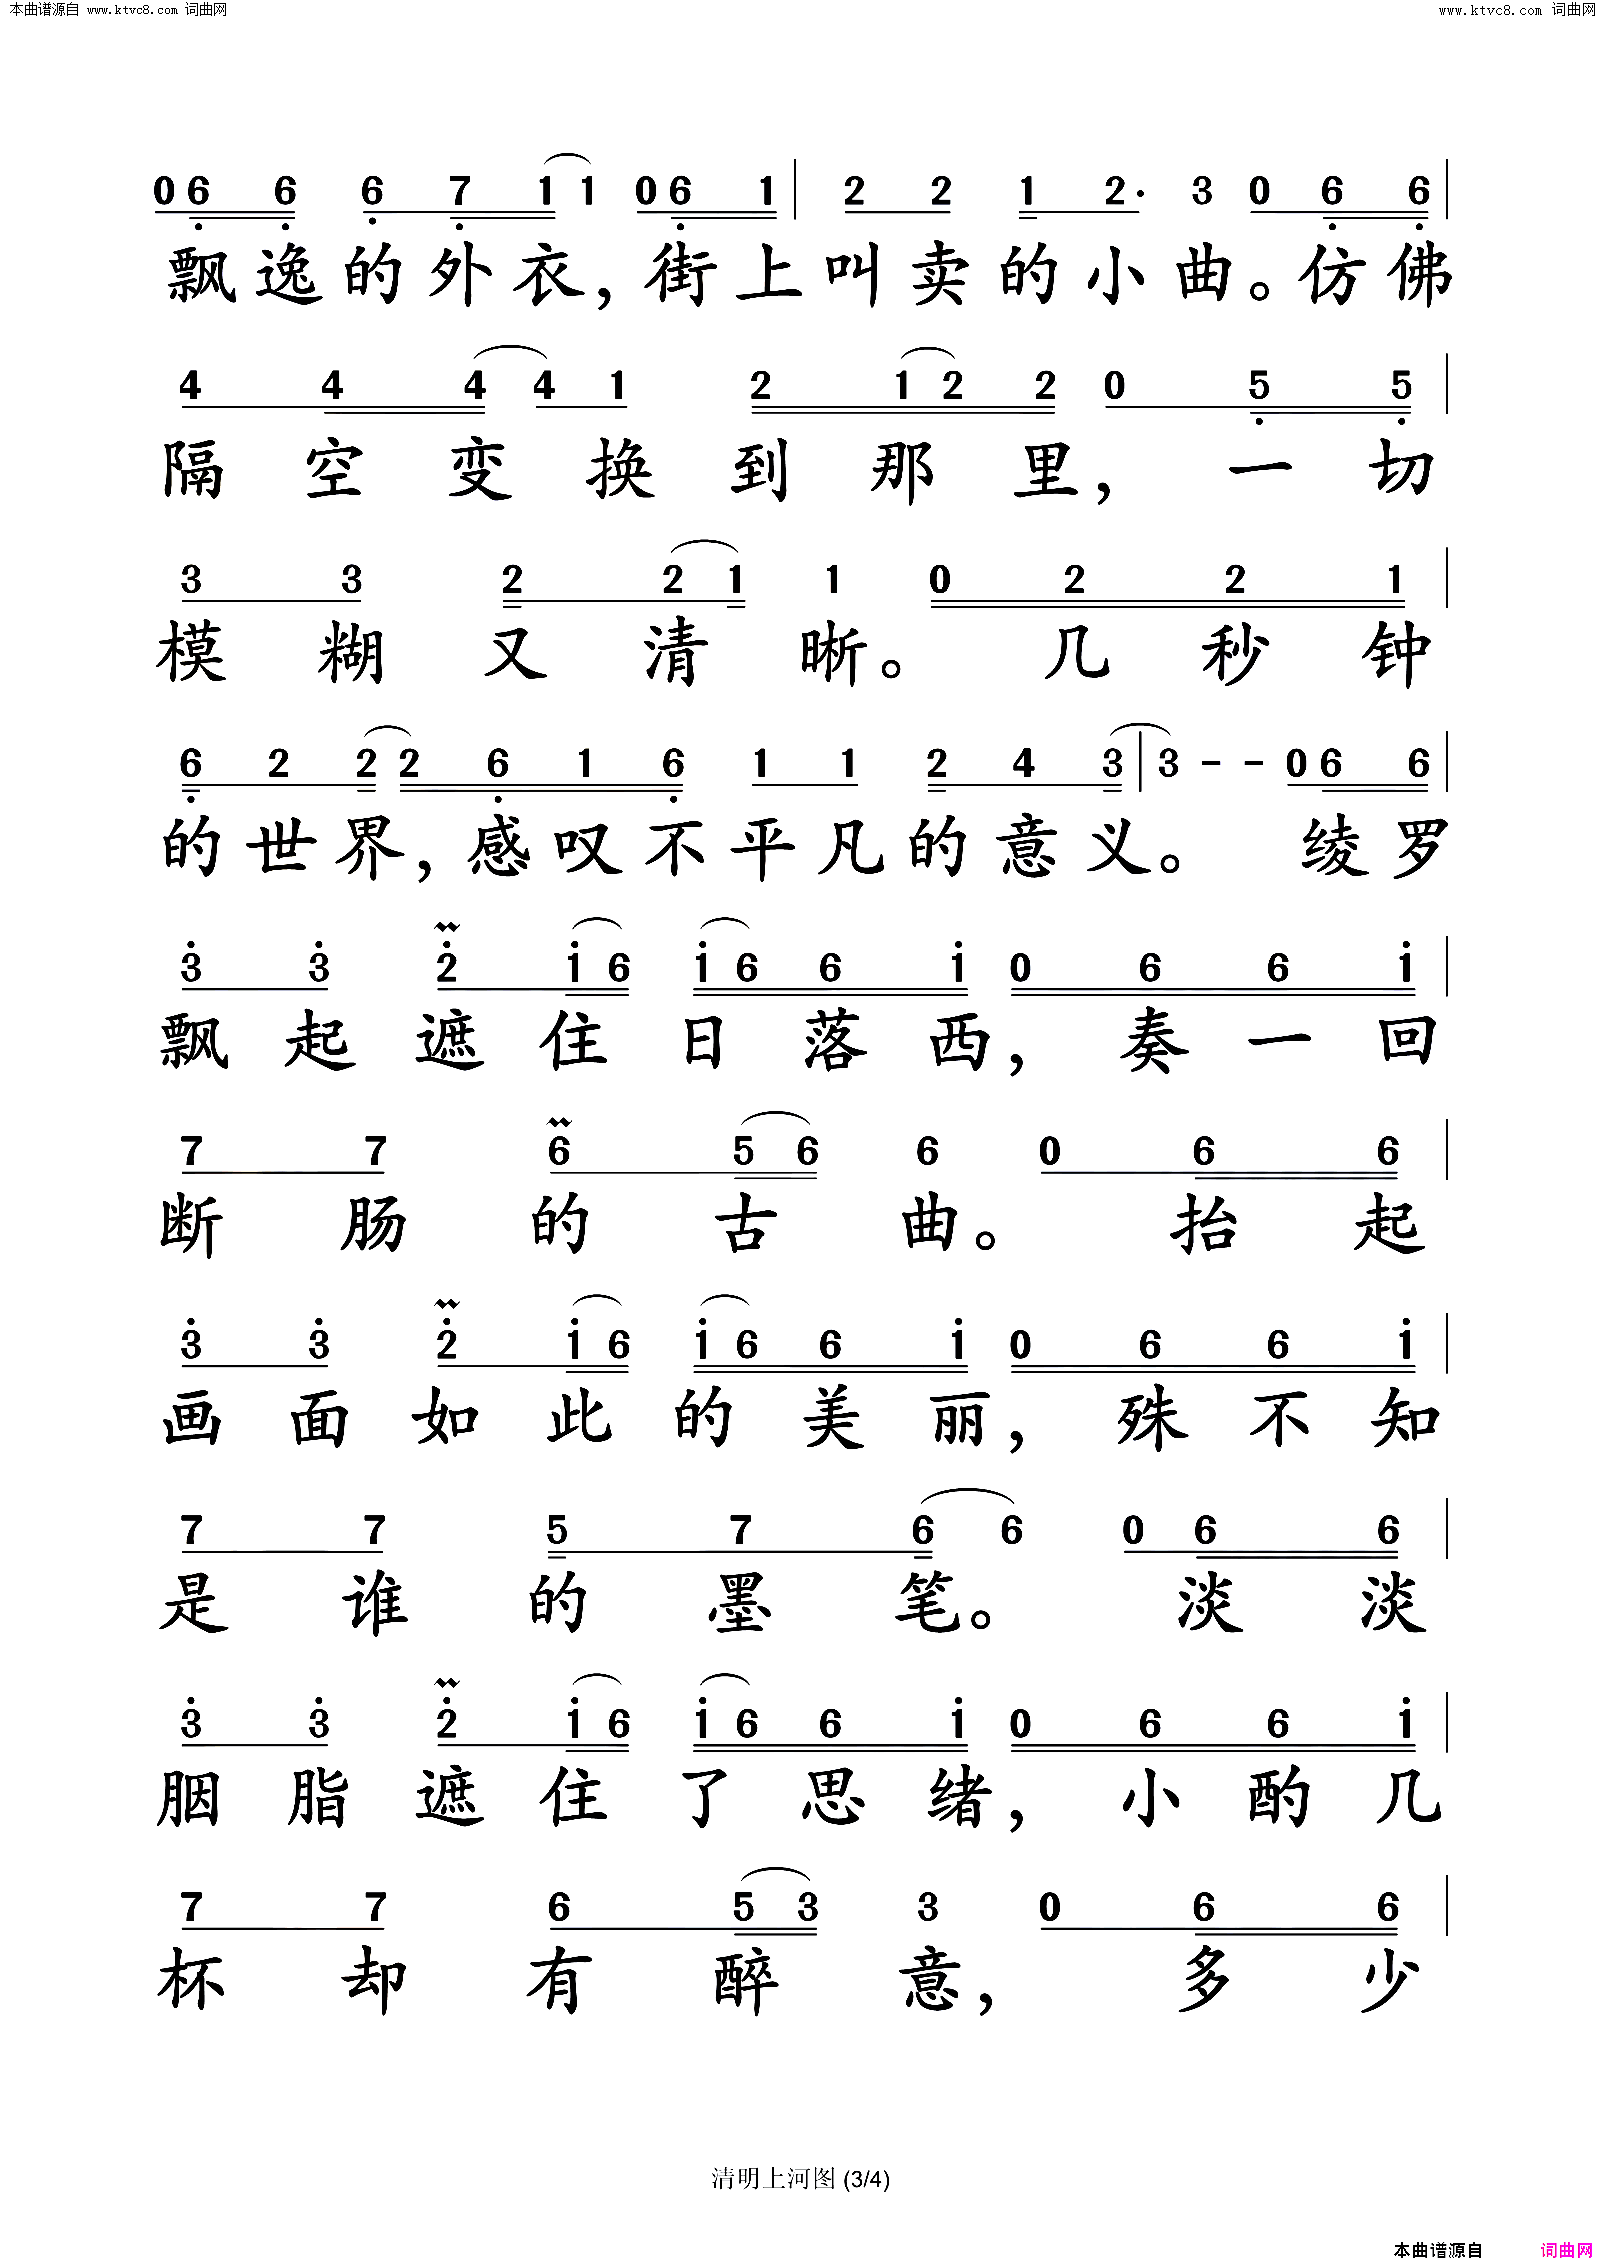 本曲谱源自 www.ktvc8.com 词曲网
www.ktvc8.com 词曲网
0 6 6 6 7 1 1 0 6 1 | 2 2 1 2· 3 0 6 6 |
飘逸的外衣，街上叫卖的小曲。仿佛
4 4 4 4 1 2 1 2 2 0 5 5 |
隔空变换到那里，一切
3 3 2 2 1 1 0 2 2 1 |
模糊又清晰。几秒钟
6 2 2 2 6 1 6 1 1 2 4 3 | 3 - - 0 6 6 |
的世界，感叹不平凡的意义。绫罗
3 3 2 1 6 1 6 6 1 0 6 6 1 |
飘起遮住日落西，奏一回
7 7 6 5 6 6 0 6 6 |
断肠的古曲。抬起
3 3 2 1 6 1 6 6 1 0 6 6 1 |
画面如此的美丽，殊不知
7 7 5 7 6 6 0 6 6 |
是谁的墨笔。淡淡
3 3 2 1 6 1 6 6 1 0 6 6 1 |
胭脂遮住了思绪，小酌几
7 7 6 5 3 3 0 6 6 |
杯却有醉意，多少
清明上河图 (3/4)
本曲谱源自 词曲网